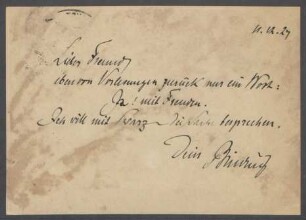 10.12.27
Lieber Freund,
eben von Vorlesungen zurück nur ein Wort:
Ja! mit Freuden.
Ich will mit die Sache besprechen.
Dein